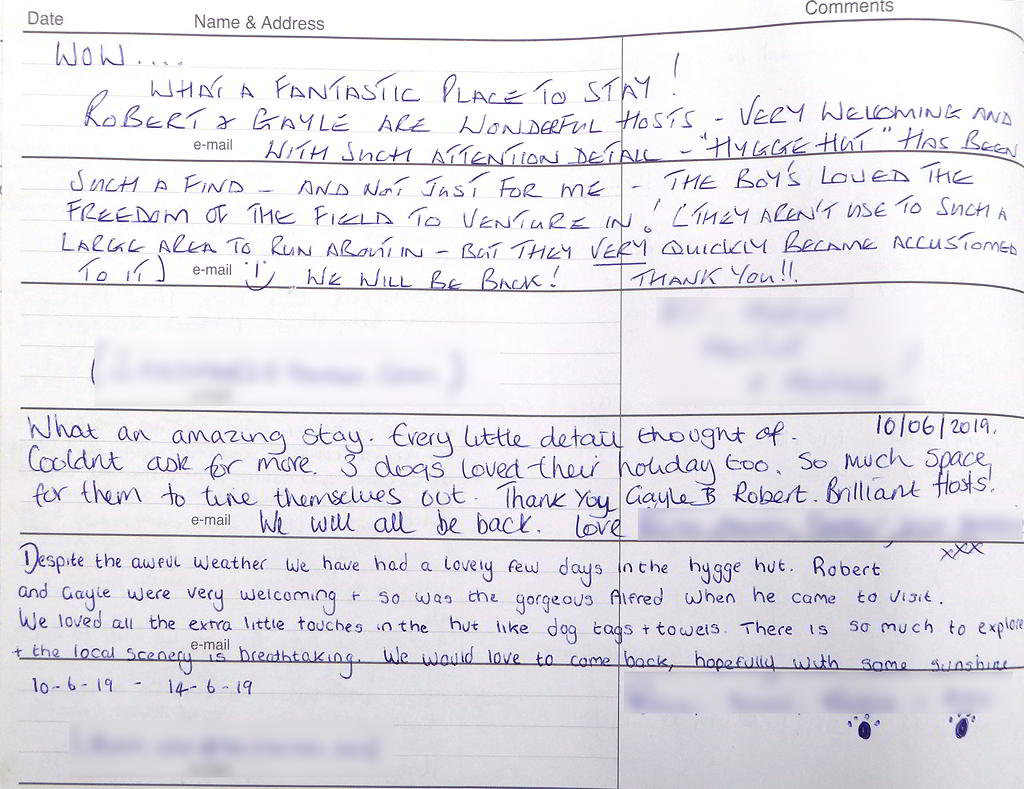 Date Name & Address Comments
WOW....
WHAT A FANTASTIC PLACE TO STAY!
ROBERT & GAYLE ARE WONDERFUL HOSTS - VERY WELCOMING AND
e-mail WITH SUCH ATTENTION DETAIL - "HYGGE HUT" HAS BEEN
SUCH A FIND - AND NOT JUST FOR ME - THE BOY'S LOVED THE
FREEDOM OF THE FIELD TO VENTURE IN! (THEY AREN'T USE TO SUCH A
LARGE AREA TO RUN ABOUT IN - BUT THEY VERY QUICKLY BECAME ACCUSTOMED
TO IT) e-mail :) WE WILL BE BACK! THANK YOU!!
What an amazing stay. Every little detail thought of. 10/06/2019.
Couldnt ask for more. 3 dogs loved their holiday too. So much space
for them to tire themselves out. Thank You Gayle & Robert. Brilliant Hosts!
e-mail We will all be back. love
xxx
Despite the awful weather we have had a lovely few days in the hygge hut. Robert
and Gayle were very welcoming + so was the gorgeous Alfred when he came to visit.
We loved all the extra little touches in the hut like dog tags + towels. There is so much to explore
e-mail
+ the local scenery is breathtaking. We would love to come back, hopefully with some sunshine
10-6-19 - 14-6-19